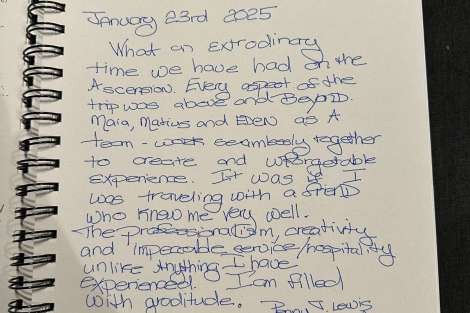 January 23rd 2025
What an extrodinary
time we have had on the
Ascension. Every aspect of the
trip was above and Beyond.
Maia, Matius and EDEN as A
team - work seamlessly together
to create and unforgatable
experience. It was if I
was traveling with a friend
who knew me very well.
The professionalism, creativity
and impeccable service/hospitality
unlike anything I have
experienced. I am filled
with graditude. Penny J. Lewis